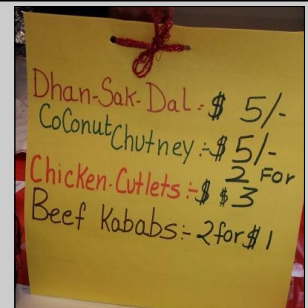 Dhan-Sak-Dal:-$ 5/-
CoConut Chutney:-$5/-
2 For
Chicken.Cutlets:-$ $3
Beef Kababs:- 2for$1